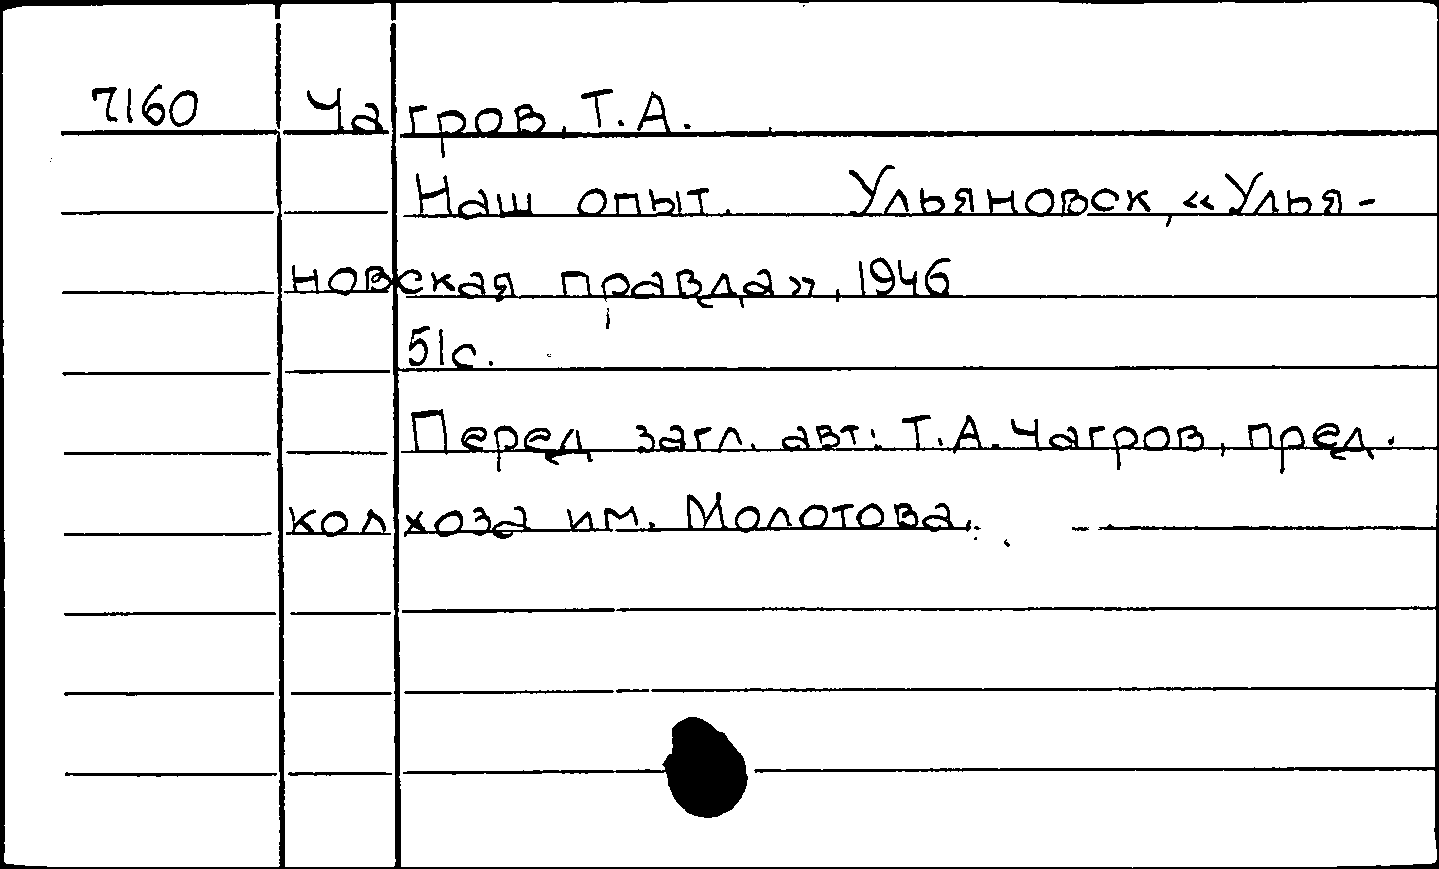 7160 Чагров, Т.А.
Наш опыт. Ульяновск, «Улья-
новская правда», 1946
51с.
Перед загл. авт: Т.А. Чагров, пред.
колхоза им. Молотова.